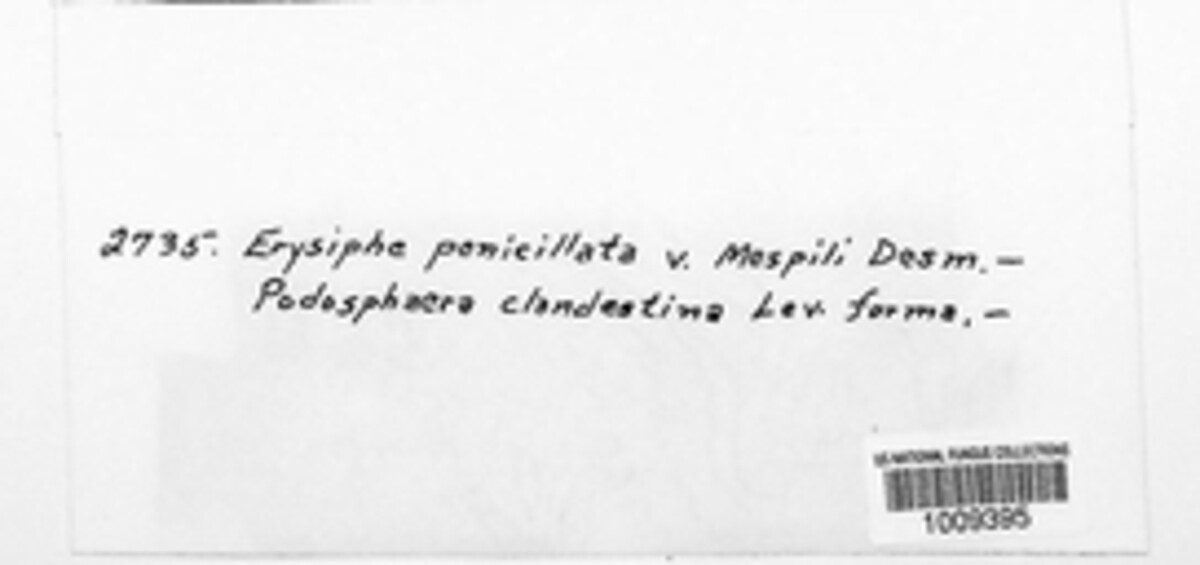 2735. Erysiphe penicillata v. Mespili Desm. —
Podosphaera clandestina Lev. forma. —
US NATIONAL FUNGUS COLLECTIONS
1009395